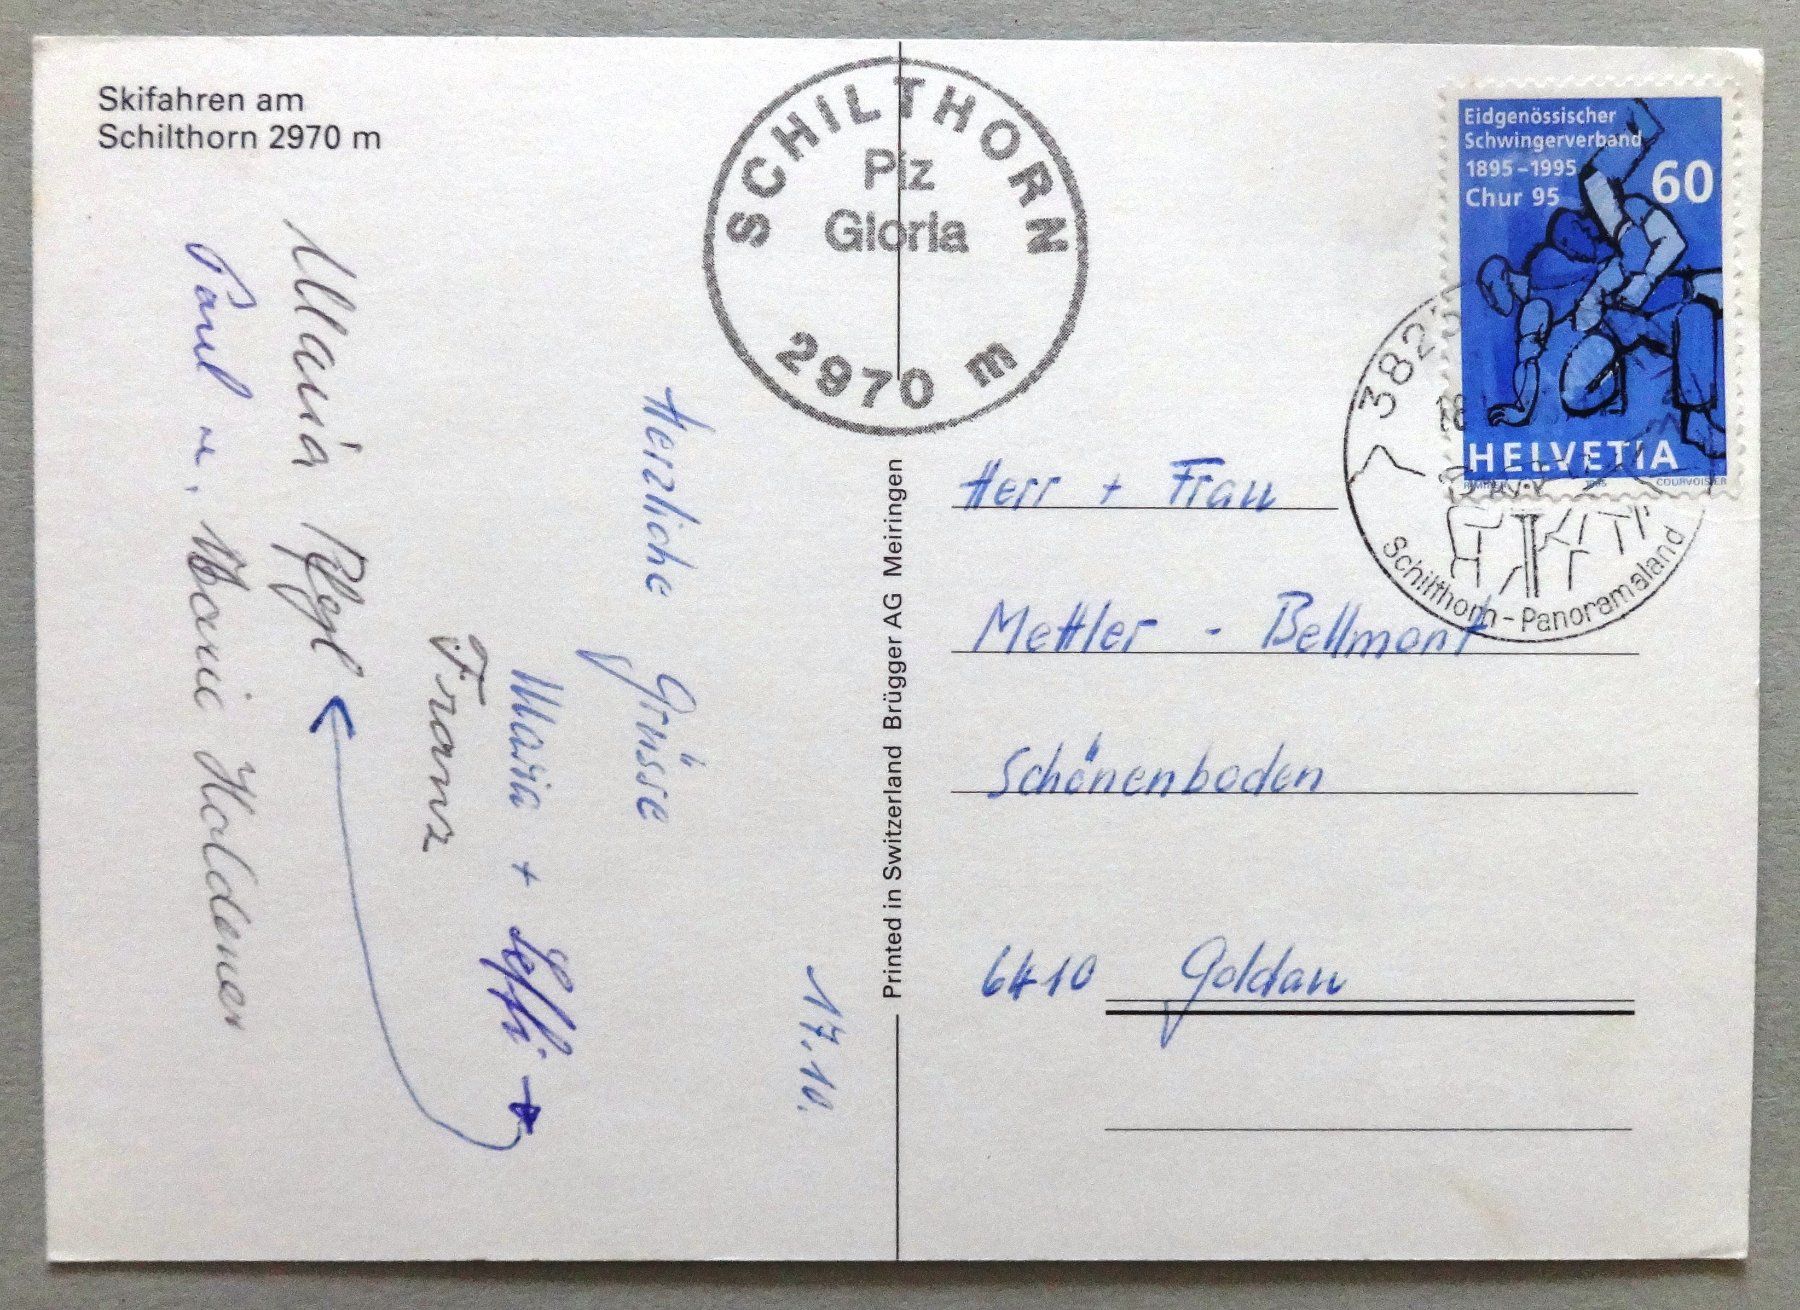 Skifahren am
Schilthorn 2970 m
SCHILTHORN
Piz
Gloria
2970 m
17.10.
Herzliche Grüsse
Maria + Seffi
Franz
Maria
Paul u. Marie Holdener
Printed in Switzerland Brügger AG Meiringen
Eidgenössischer
Schwingerverband
1895–1995
Chur 95
60
HELVETIA
1995
COURVOISIER
382
18
Schilthorn-Panoramaland
Herr + Frau
Mettler - Bellmont
Schönenboden
6410 Goldau